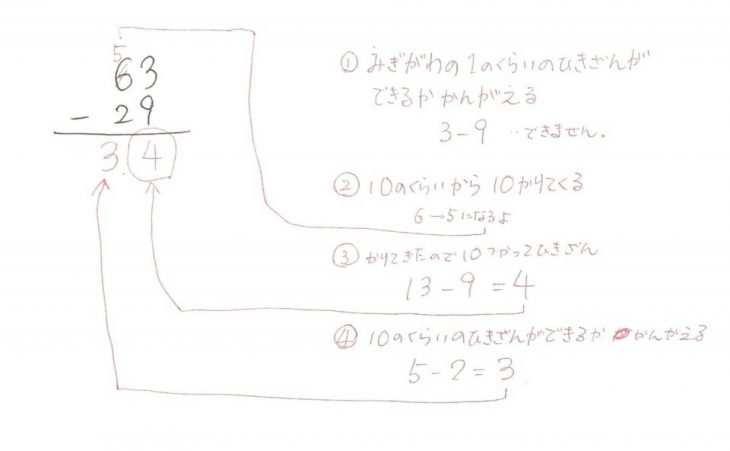 5
63
- 29
3 4
① みぎがわの1のくらいのひきざんが
できるか かんがえる
3-9 ‥できません。
② 10のくらいから 10かりてくる
6→5になるよ
③ かりてきたので10つかってひきざん
13-9=4
④ 10のくらいのひきざんができるか かんがえる
5-2=3